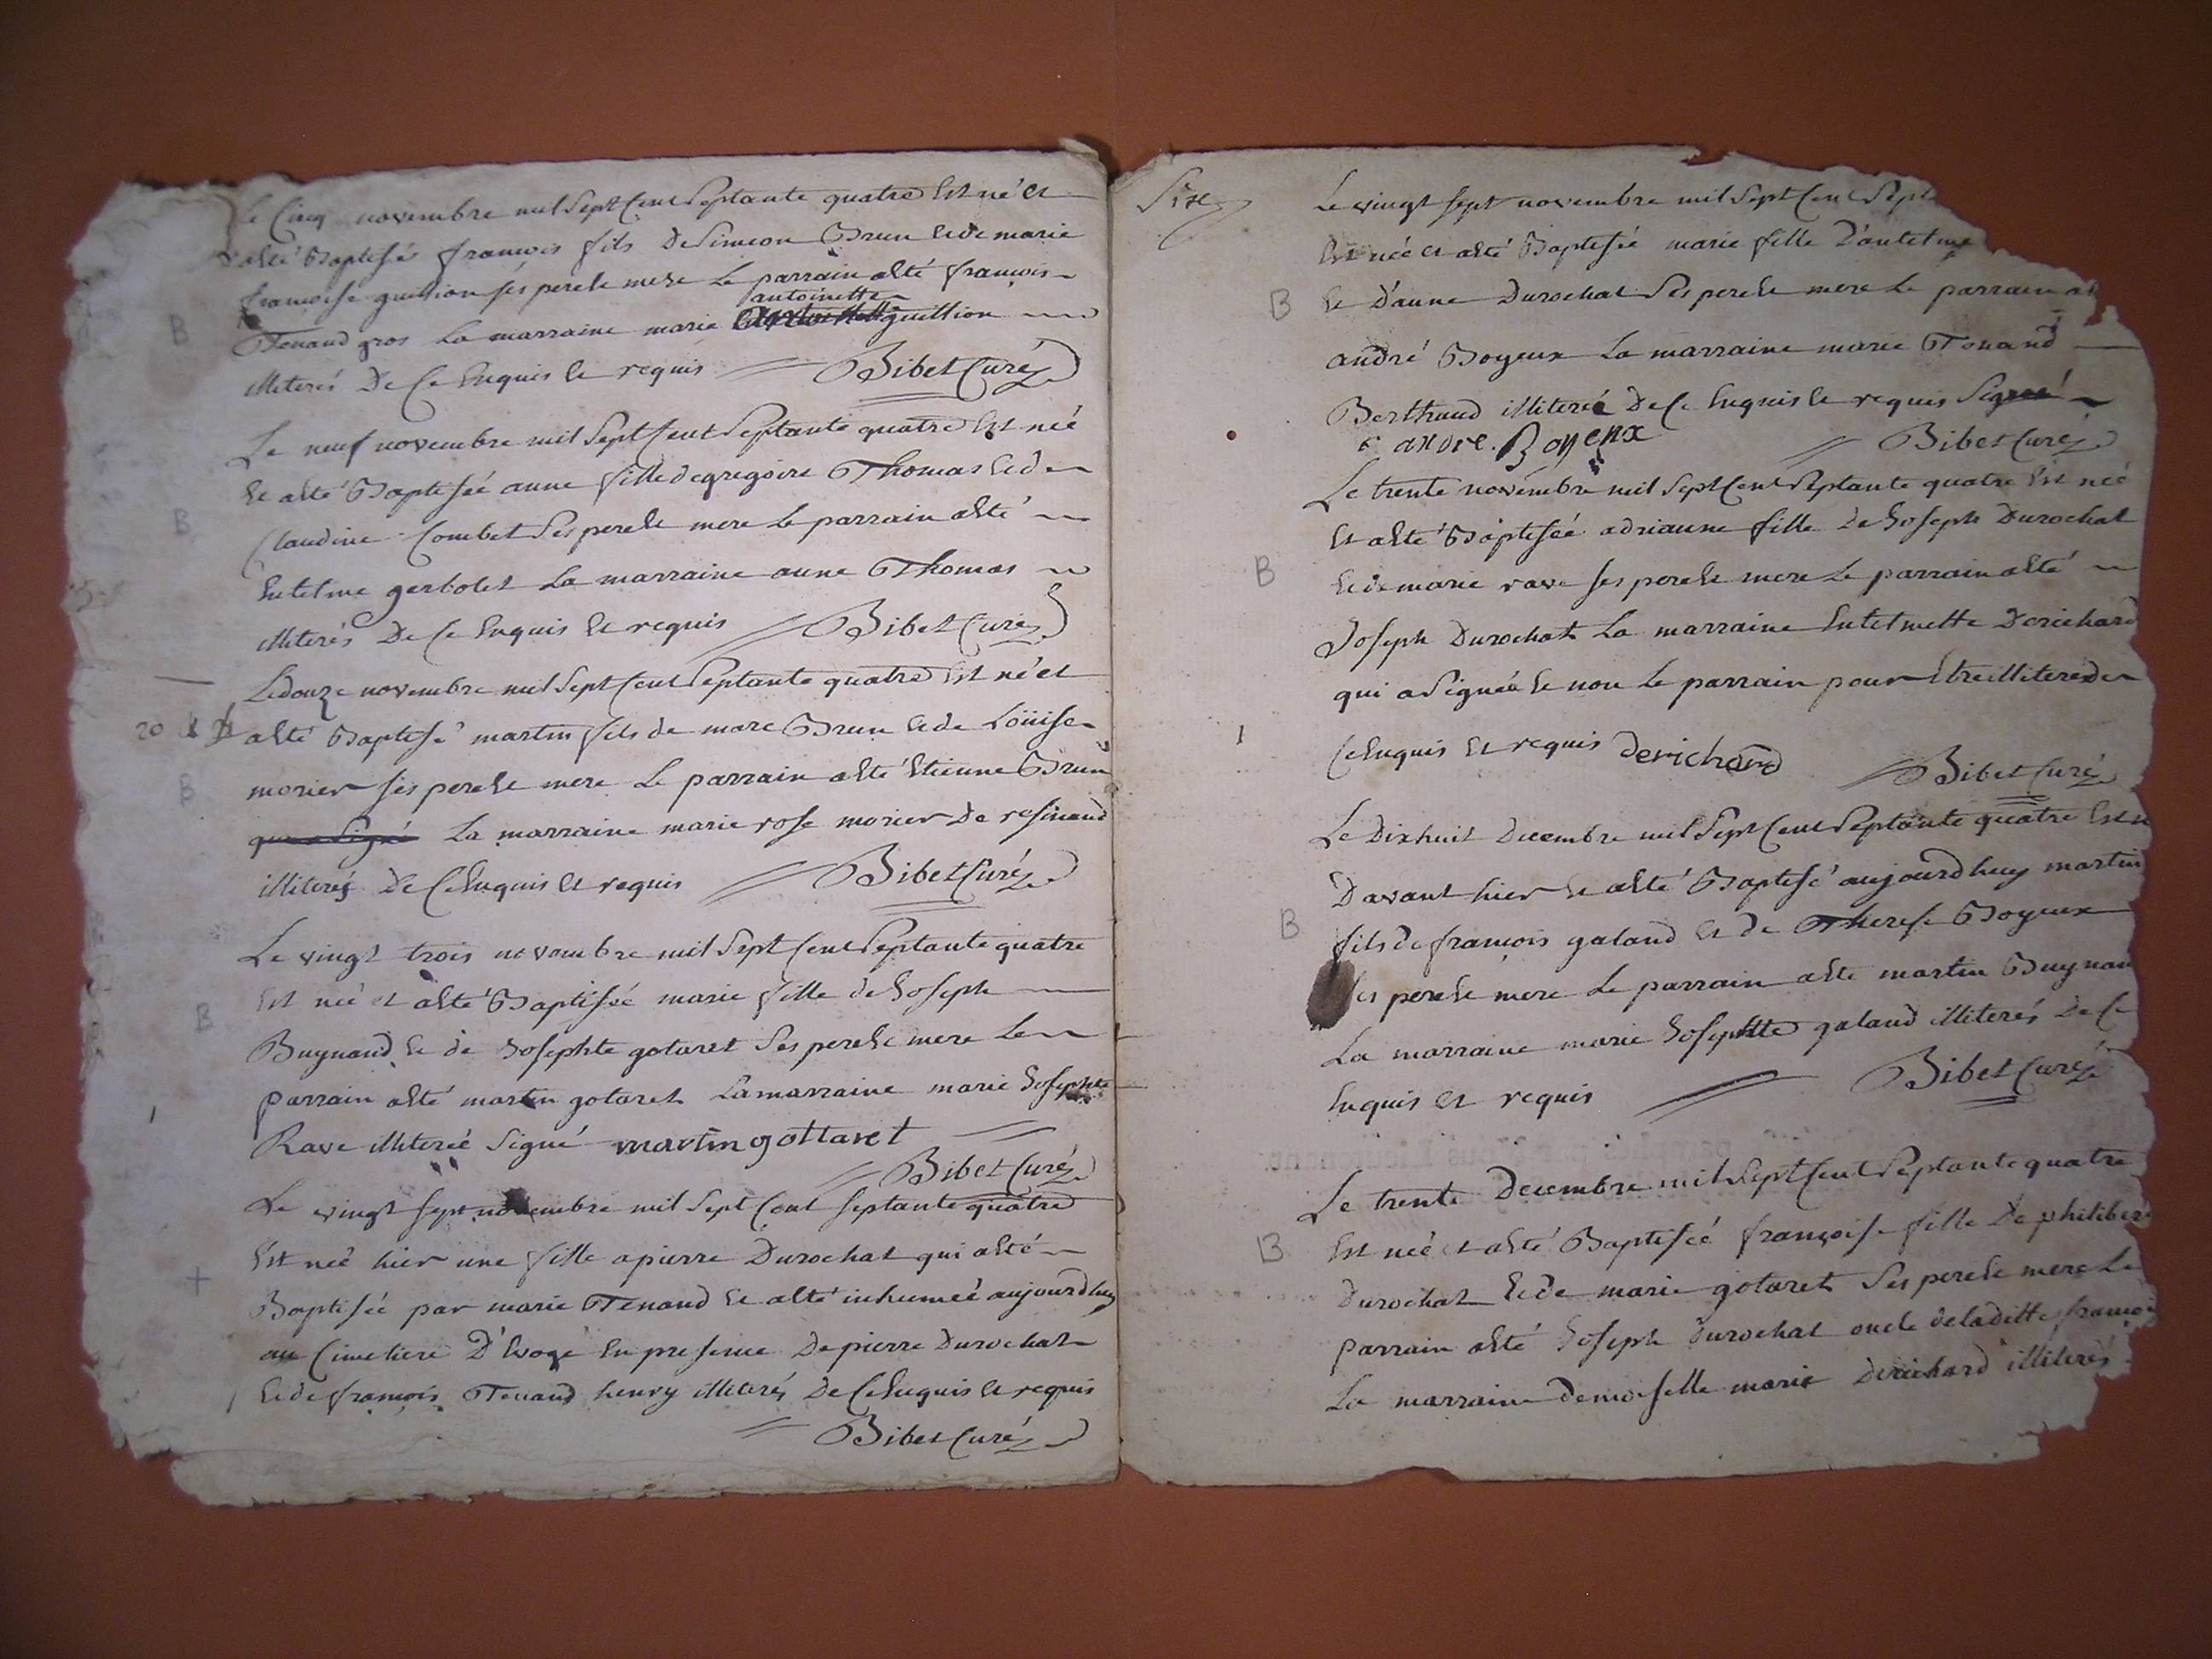 Le Cinq novembre mil Sept Cent Septante quatre Est né et
a Esté Baptisé françois fils De Simeon Brun et de marie
françoise guillion ses pere et mere Le parrain a Esté françois
antoinette
B
Tenand gros La marraine marie guillion
illiterés De Ce Enquis et requis Bibet Curé
Le neuf novembre mil Sept Cent Septante quatre Est neé
et a Esté Baptiseé anne fille de gregoire Thomas et de
B
Claudine Combet Ses pere et mere Le parrain a Esté
Entelme gerbolet La marraine anne Thomas
illiterés De Ce Enquis et requis Bibet Curé
Le douze novembre mil Sept Cent Septante quatre Est né et
20
a Esté Baptisé martin fils de marc Brun et de Loüise
B
morier ses pere et mere Le parrain a Esté Etienne Brun
qui a Signé La marraine marie rose morier De resinand
illiterés De Ce Enquis et requis Bibet Curé
Le vingt trois novembre mil Sept Cent Septante quatre
Est neé et a Esté Baptiseé marie fille de Joseph
B
Buynand et de Josephte gotaret Ses pere et mere Le
parrain a Esté martin gotaret La marraine marie Josephte
Rave illitereé Signé martin gottaret
Bibet Curé
Le vingt sept novembre mil Sept Cent septante quatre
Est neé hier une fille a pierre Durochat qui a Esté
+
Baptiseé par marie Tenand et a Esté inhumeé aujourdhuy
au Cimetiere D'Evoge En presence De pierre Durochat
et de françois Tenand henry illiterés De Ce Enquis et requis
Bibet Curé
Six
Le vingt sept novembre mil Sept Cent Sept
Est neé et a Esté Baptiseé marie fille D'antelme
B
et D'anne Durochat Ses pere et mere Le parrain a
andré Boyeux La marraine marie Tenand
Berthaud illitereé De Ce Enquis et requis Signé
andre Boyeux Bibet Curé
Le trente novembre mil Sept Cent Septante quatre Est neé
et a Esté Baptiseé adrianne fille de Joseph Durochat
B
et de marie rave ses pere et mere Le parrain a Esté
Joseph Durochat La marraine Entelmette Derichard
qui a Signeé et non Le parrain pour Etre illiteré de
Ce Enquis et requis derichard Bibet Curé
Le Dixhuit Decembre mil Sept Cent Septante quatre Est n
D'avant hier et a Esté Baptisé aujourdhuy martin
B
fils de françois galand et de Therese Boyeux
Ses pere et mere Le parrain a Esté martin Buynan
La marraine marie Josephte galand illiterés De Ce
Enquis et requis Bibet Curé
Le trente Decembre mil Sept Cent Septante quatre
B
Est neé et a Esté Baptiseé françoise fille De philiber
Durochat et de marie gotaret Ses pere et mere Le
parrain a Esté Joseph Durochat oncle de laditte françoi
La marraine Demoiselle marie Derichard illiterés